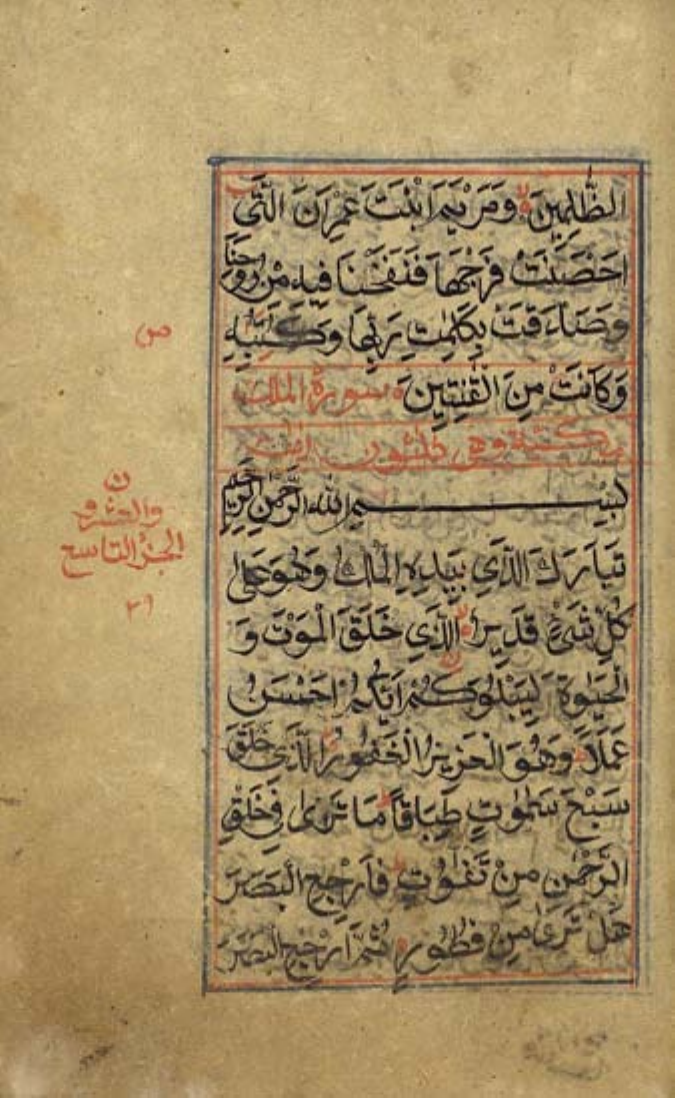 الظّٰلِمِينَ وَمَرْيَمَ ابْنَتَ عِمْرَانَ الَّتِى
اَحْصَنَتْ فَرْجَهَا فَنَفَخْنَا فِيهِ مِنْ رُوحِنَا
وَصَدَّقَتْ بِكَلِمٰتِ رَبِّهَا وَكُتُبِهِ
وَكَانَتْ مِنَ الْقٰنِتِينَ سورة الملك
مكية وهى ثلثون ايت
بِسْمِ اللهِ الرَّحْمٰنِ الرَّحِيمِ
تَبَارَكَ الَّذِى بِيَدِهِ الْمُلْكُ وَهُوَ عَلٰى
كُلِّ شَىْءٍ قَدِيرٌ الَّذِى خَلَقَ الْمَوْتَ وَ
الْحَيٰوةَ لِيَبْلُوَكُمْ اَيُّكُمْ اَحْسَنُ
عَمَلًا وَهُوَ الْعَزِيزُ الْغَفُورُ الَّذِى خَلَقَ
سَبْعَ سَمٰوٰتٍ طِبَاقًا مَا تَرٰى فِى خَلْقِ
الرَّحْمٰنِ مِنْ تَفٰوُتٍ فَارْجِعِ الْبَصَرَ
هَلْ تَرٰى مِنْ فُطُورٍ ثُمَّ ارْجِعِ الْبَصَرَ
ص
ن
والعشرو
الجزء التاسع
٢٩